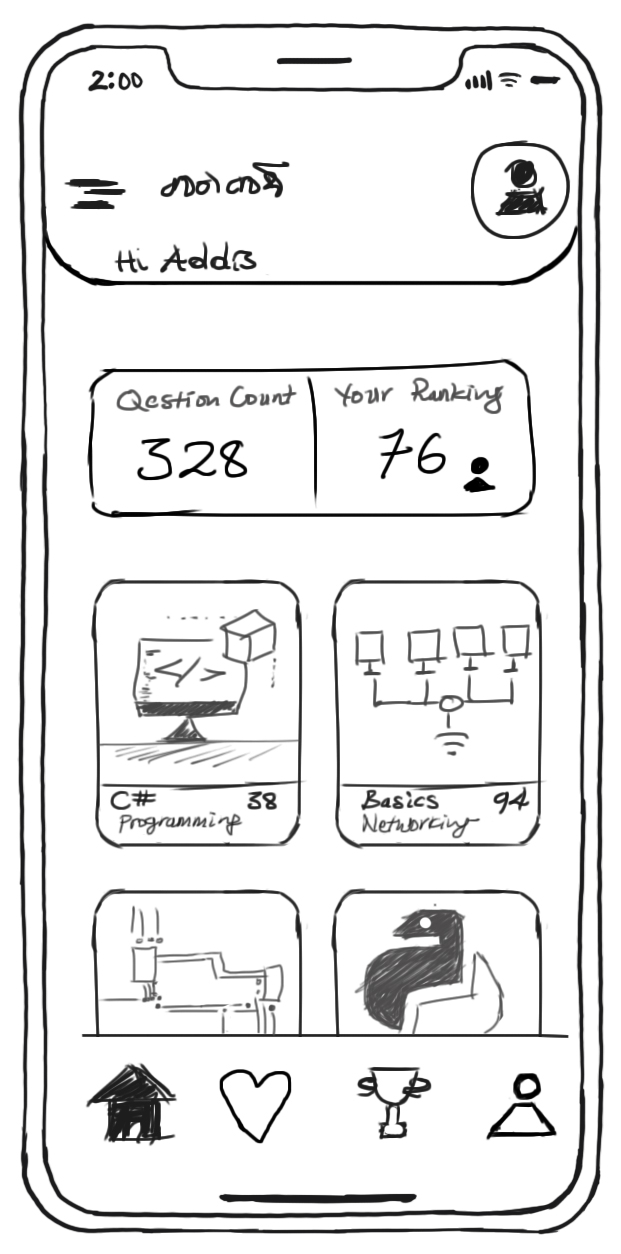 2:00
Hi Addis
Qestion Count
Your Ranking
328
76
</>
C#
38
Programming
Basics
94
Networking